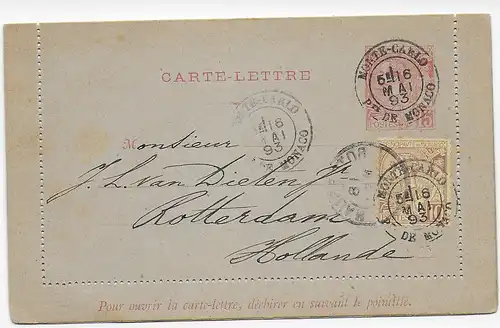 CARTE-LETTRE
MONTE-CARLO
16
MAI
93
PTÉ DE MONACO
MONTE-CARLO
16
MAI
93
MONACO
Monsieur
J. L. van Dieten Jr.
Rotterdam
Hollande
MONTE-CARLO
16
MAI
93
DE MO
Pour ouvrir la carte-lettre, déchirer en suivant le pointillé.